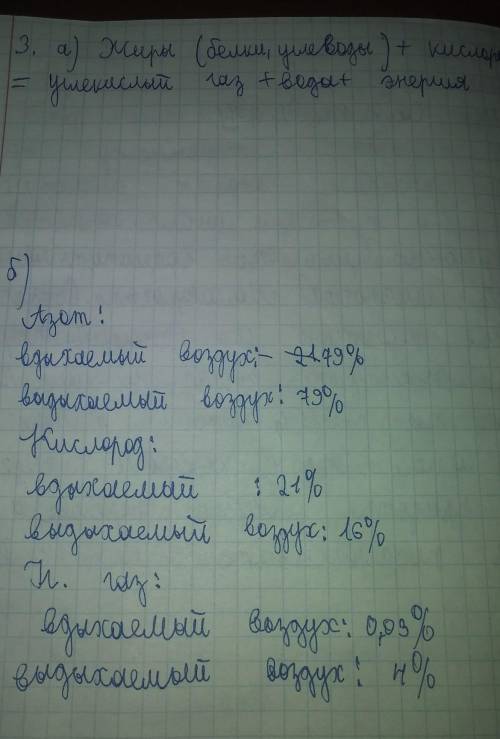 3. а) Жиры (белки, углеводы) + кислор
= углекислый газ + вода + энергия
б)
Азот:
вдыхаемый воздух: - 21 79%
выдыхаемый воздух: 79%
Кислород:
вдыхаемый : 21%
выдыхаемый воздух: 16%
газ:
вдыхаемый воздух: 0,03%
выдыхаемый воздух: 4%